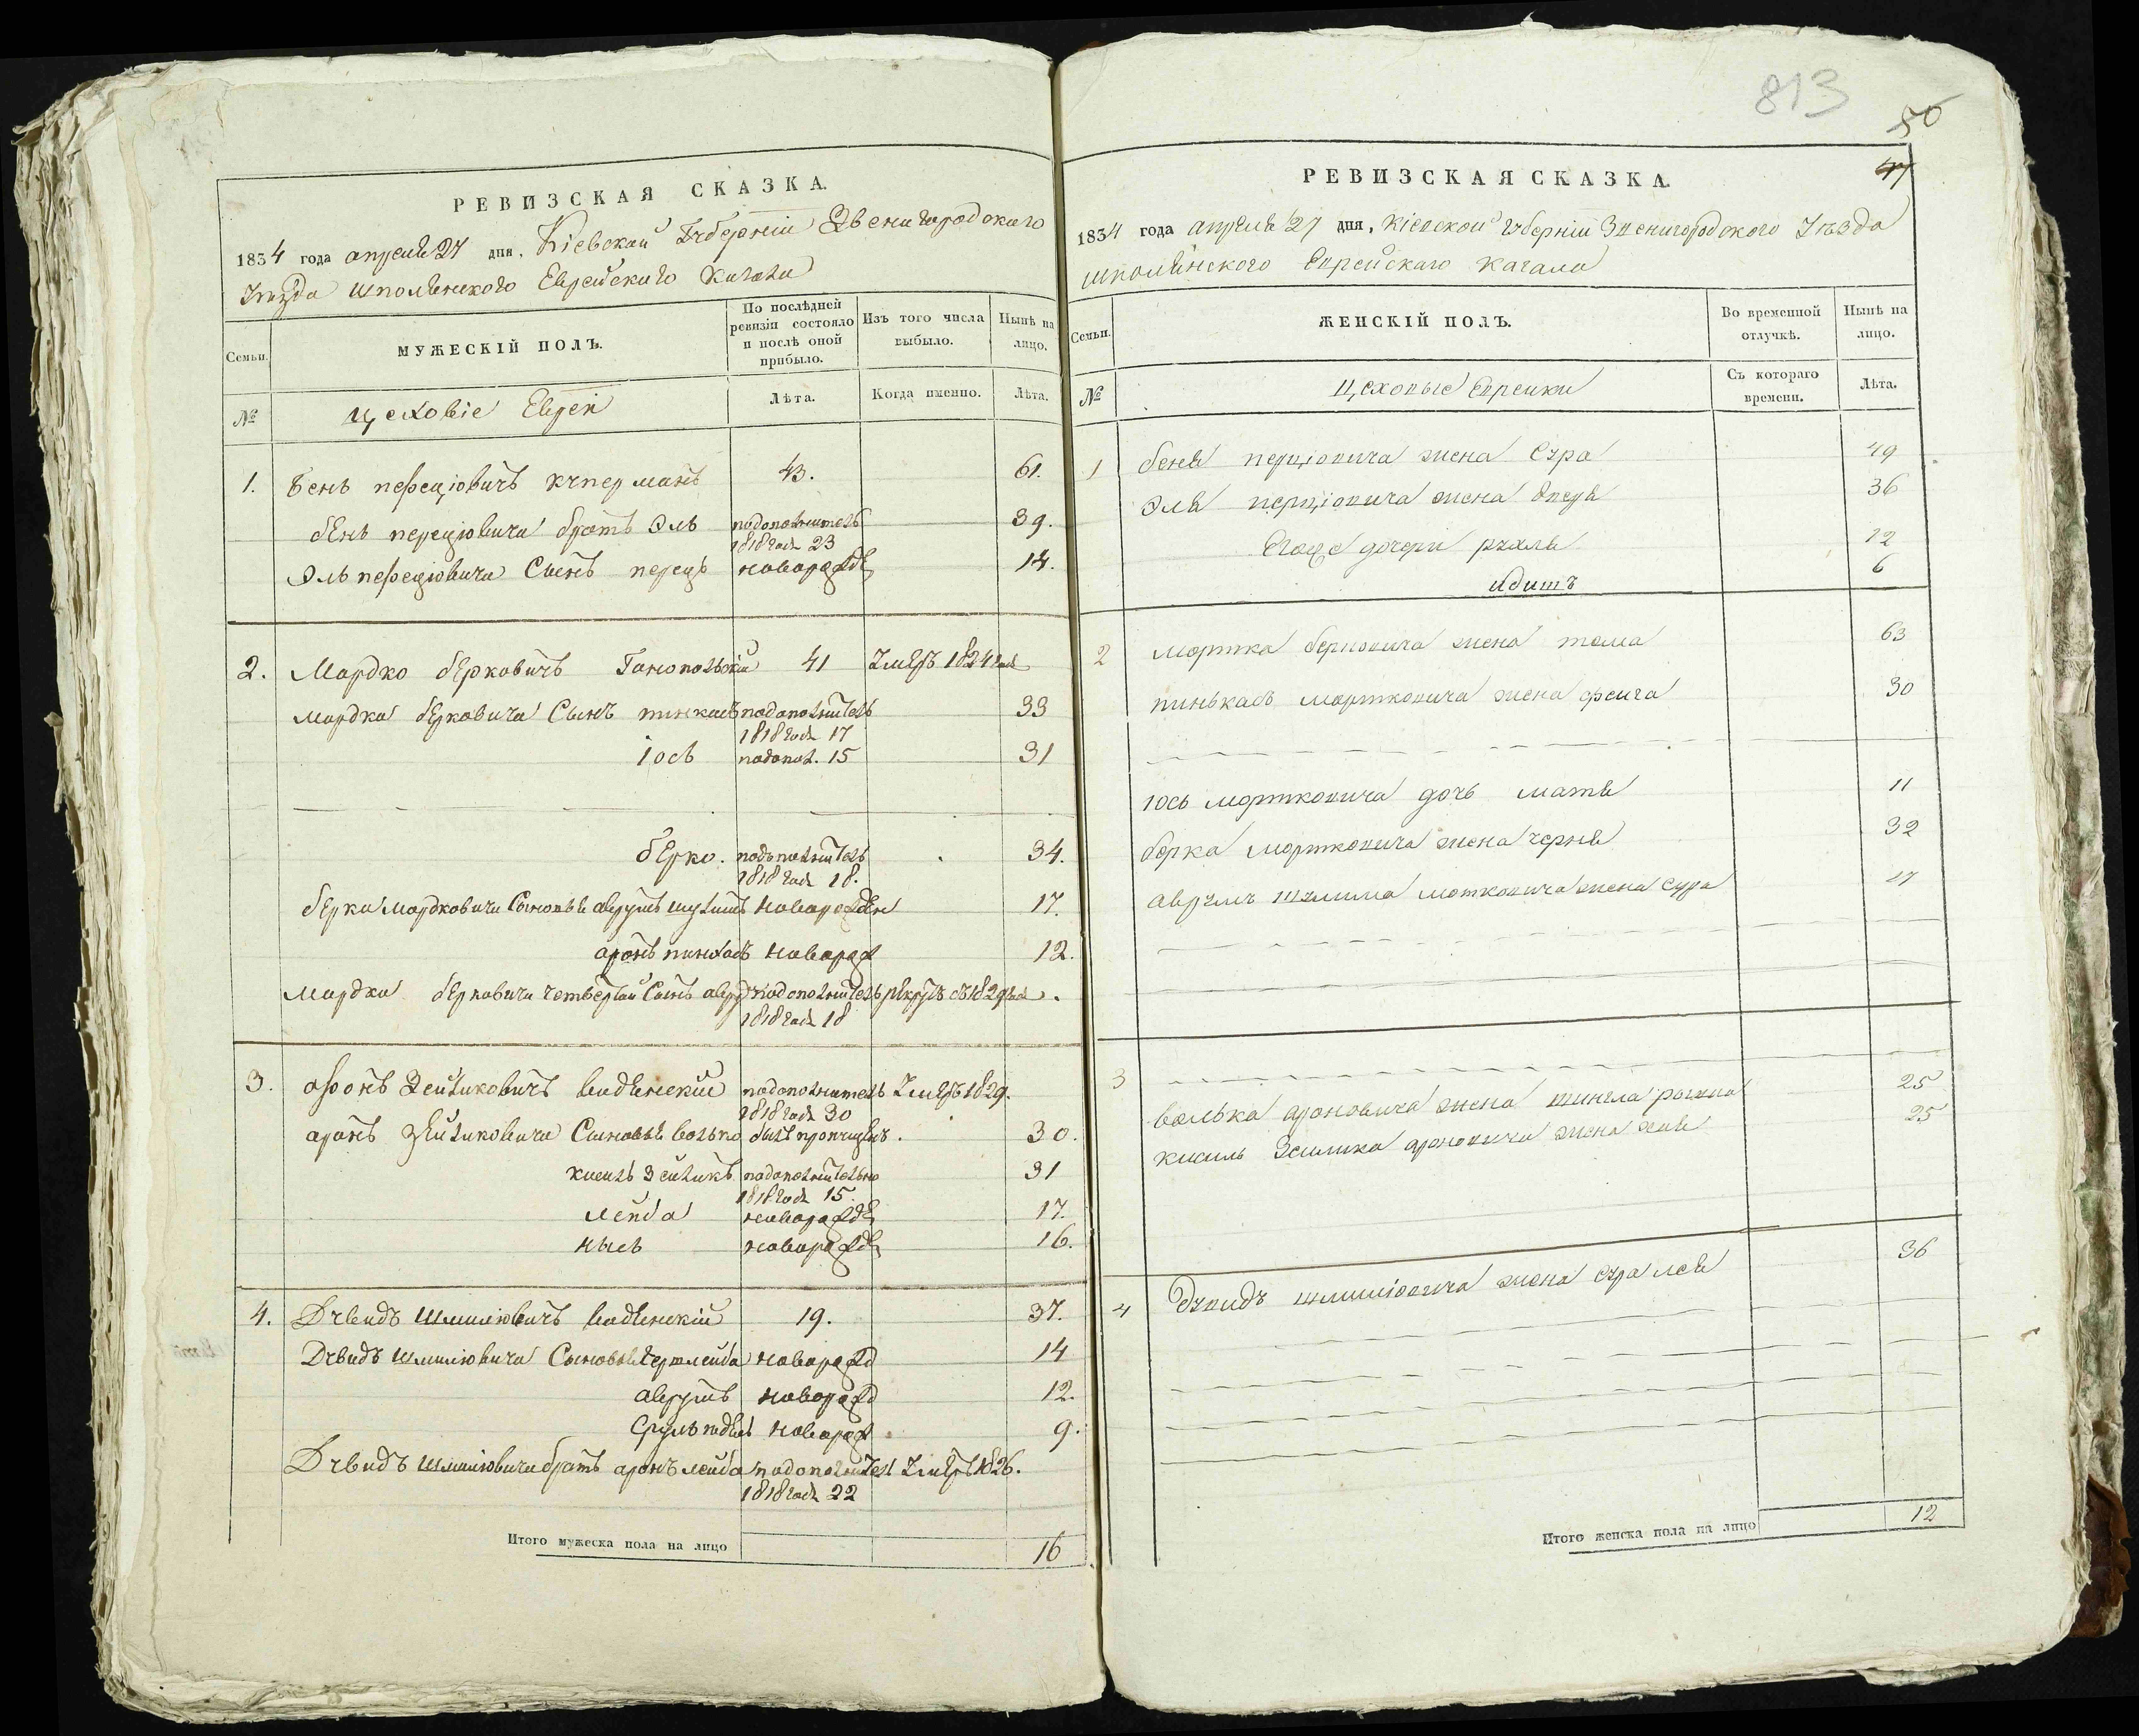 РЕВИЗСКАЯ СКАЗКА.
1834 года апреля 27 дня, Кіевской Губерніи Звенигородского
Уезда шполянского Еврейскаго Кагала
Семьи.
МУЖЕСКІЙ ПОЛЪ.
По послѣдней ревизіи состояло и послѣ оной прибыло.
Изъ того числа выбыло.
Нынѣ на лицо.
№
Цеховіе Евреи
Лѣта.
Когда именно.
Лѣта.
1. Бень перецiовичъ купер манъ 43. 61.
бень перецiовича братъ Эль подополнитель 39.
1818 года 23
Эль перецiовича Сынъ перецъ новорожде 14.
2. Мардко берковичъ 41 Умеръ 1824 года
мардка берковича Сынъ пинкасъ подополнитель 33
1818 года 17
іось подопол. 15 31
берко. подополнитель 34.
1818 года 18.
берка мардковича Сыновья аврумъ шулимъ новорожден 17.
аронъ пинхасъ новорож 12.
мардка берковича четвертый Сынъ подополнитель рекрутъ съ 1829 года.
1818 года 18
3. аронъ Зейликовичъ видѣнскій подополнитель Умеръ 1829.
1818 года 30
аронъ зейликовича Сыновья волько былъ пропущенъ. 30.
кисиль Зейликъ подополнительно 31
1818 года 15.
лейба новорожде 17.
нысь новорожде 16.
4. Дувидъ Шмиліовичъ видѣнскій 19. 37.
Дувидъ шмиліовича Сыновья лейба новорожд 14
аврумъ новорожд 12.
Сруль новорож 9.
Дувидъ шмиліовича братъ аронъ лейба подополнител Умеръ 1826.
1818 года 22
Итого мужеска пола на лицо 16
813
50
47
РЕВИЗСКАЯ СКАЗКА.
1834 года апреля 27 дня, Кіевской Губерніи Звенигородского Уезда
шполянского Еврейскаго Кагала
Семьи.
ЖЕНСКІЙ ПОЛЪ.
Во временной отлучкѣ.
Нынѣ на лицо.
№
Цеховые Еврейки
Съ котораго времени.
Лѣта.
1 беня перцiовича жена Сура 49
Эля перцiовича жена двера 36
Егоже дочери рухля 12
идитъ 6
2 мортка берковича жена тема 63
пинькасъ мортковича жена фейга 30
іось мортковича дочь матя 11
берка мортковича жена черня 32
аврумъ шулима мотковича жена сура 17
3
волька ароновича жена шингла 25
кисиль Зейлика ароновича жена хая 25
4 Дувидъ шмиліовича жена сура лея 36
Итого женска пола на лицо 12